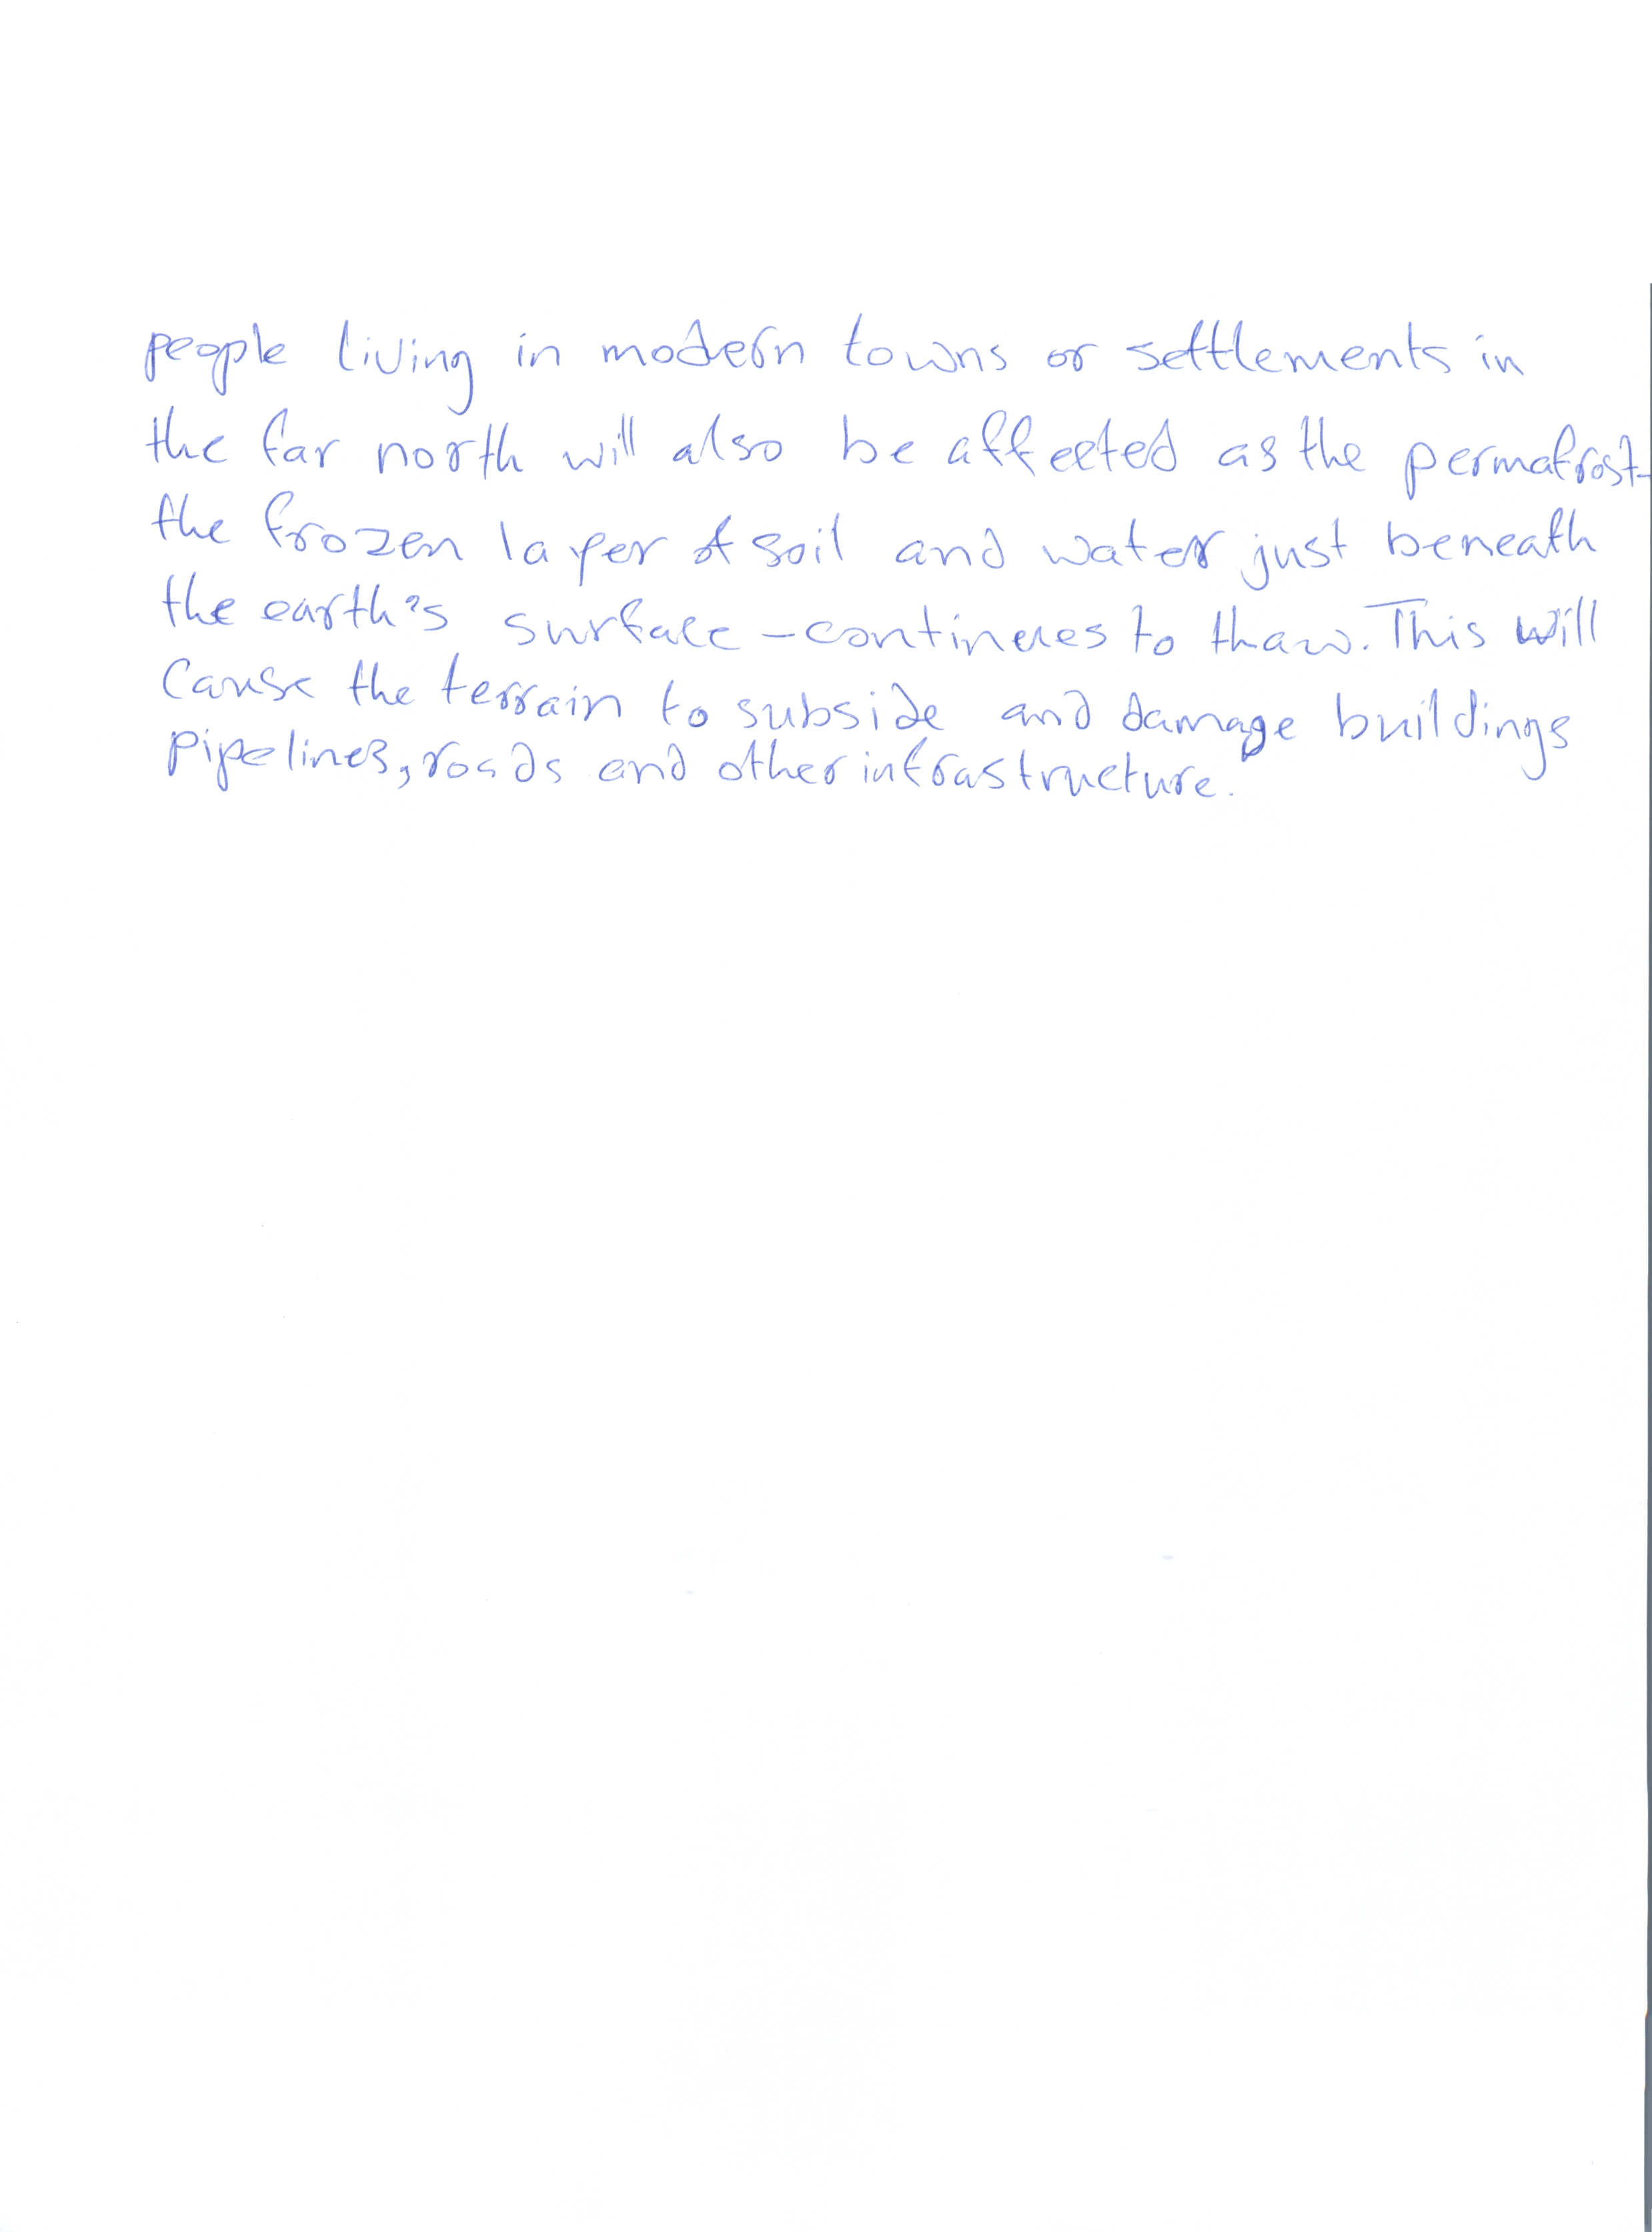 people living in modern towns or settlements in
the far north will also be affected as the permafrost-
the frozen layer of soil and water just beneath
the earth's surface - continues to thaw. This will
Cause the terrain to subside and damage buildings
pipelines, roads and other infrastructure.